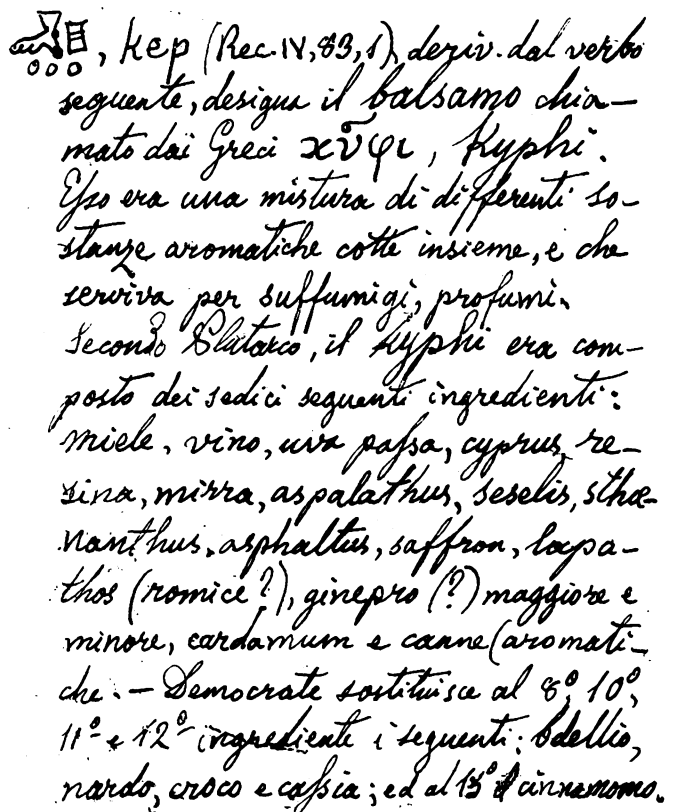 , kep (Rec. IV, 83, 1), deriv. dal verbo
seguente, designa il balsamo chia-
mato dai Greci κῦφι, Kyphi.
Esso era una mistura di differenti so-
stanze aromatiche cotte insieme, e che
serviva per suffumigi, profumi.
Secondo Plutarco, il Kyphi era com-
posto dei sedici seguenti ingredienti:
miele, vino, uva passa, cyprus, re-
sina, mirra, aspalathus, seselis, sthœ-
nanthus, asphaltus, saffron, lapa-
thos (romice?), ginepro (?) maggiore e
minore, cardamum e canne (aromati-
che. — Democrate sostituisce al 8º, 10º,
11º e 12º ingrediente i seguenti: bdellio,
nardo, croco e cassia; ed al 15º cinnamomo.